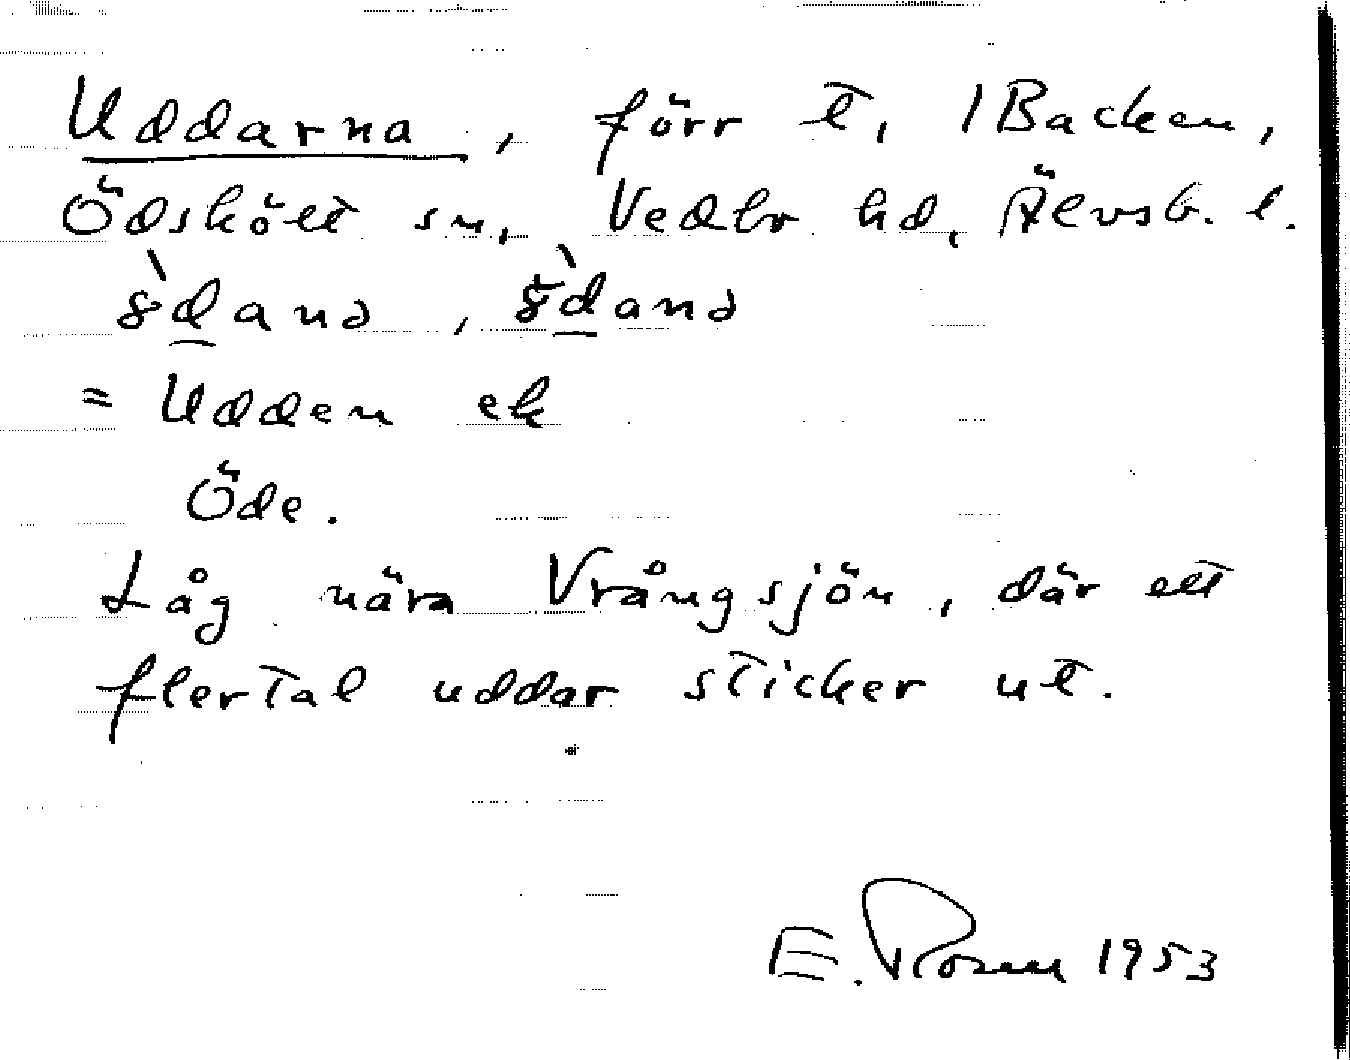 Uddarna, förr t, 1 Backen,
Ödskölt sn, Vedbo hd, Älvsb. l.
= Udden ek
Öde.
Låg nära Vrångsjön, där ett
flertal uddar sticker ut.
E. Rosen 1953